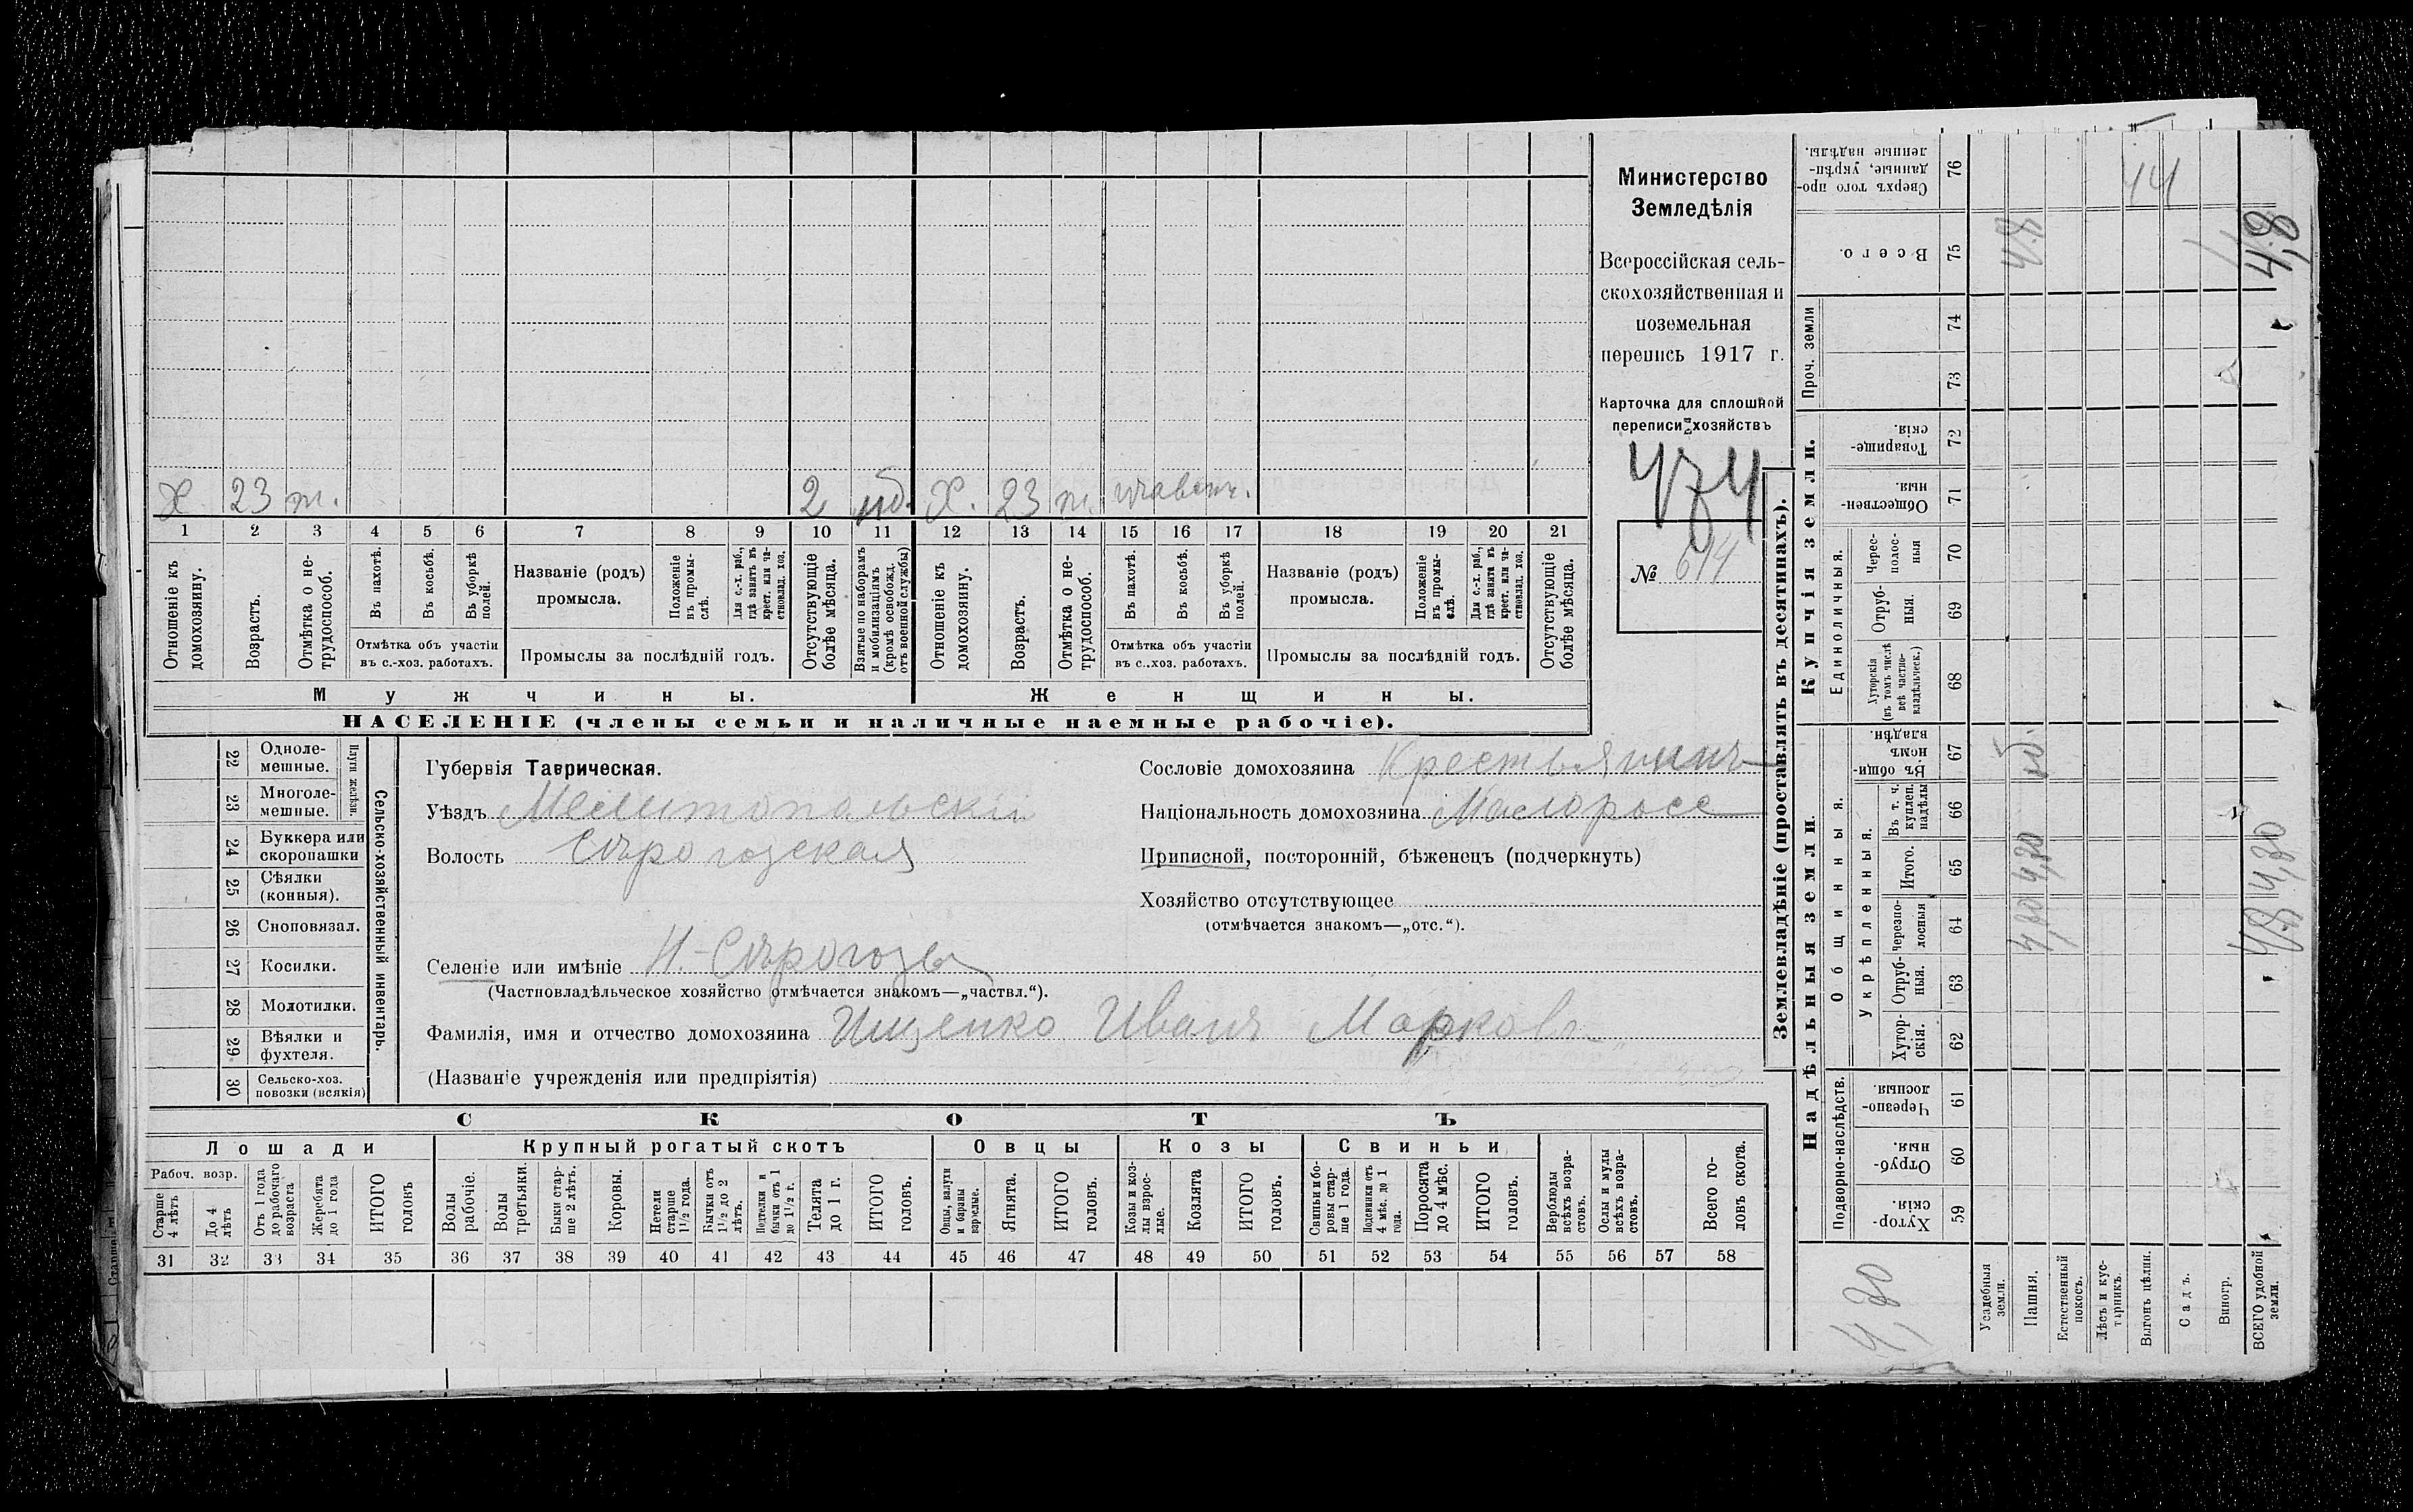 Министерство
Земледѣлія
Всероссійская сель-
скохозяйственная и
поземельная
перепись 1917 г.
Карточка для сплошной
переписи хозяйствъ
474
№ 614
Х. 23 т. 2 Х. 23 т.
1 2 3 4 5 6 7 8 9 10 11 12 13 14 15 16 17 18 19 20 21
Отношеніе къ домохозяину.
Возрастъ.
Отмѣтка о не-трудоспособ.
Въ пахотѣ.
Въ косьбѣ.
Въ уборкѣ полей.
Отмѣтка объ участіи
въ с.-хоз. работахъ.
Названіе (родъ)
промысла.
Положеніе въ промы-слѣ.
Для с.-х. раб., гдѣ занятъ въ крест. или ча-стновлад. хоз.
Промыслы за послѣдній годъ.
Отсутствующіе болѣе мѣсяца.
Взятые по наборамъ и мобилизаціямъ (кромѣ освобожд. отъ военной службы)
Отношеніе къ домохозяину.
Возрастъ.
Отмѣтка о не-трудоспособ.
Въ пахотѣ.
Въ косьбѣ.
Въ уборкѣ полей.
Отмѣтка объ участіи
въ с.-хоз. работахъ.
Названіе (родъ)
промысла.
Положеніе въ промы-слѣ.
Для с.-х. раб., гдѣ занята въ крест. или ча-стновлад. хоз.
Промыслы за послѣдній годъ.
Отсутствующіе болѣе мѣсяца.
Мужчины. Женщины.
НАСЕЛЕНІЕ (члены семьи и наличные наемные рабочіе).
22 Одноле-мешные.
23 Многоле-мешные.
Плуги желѣзн.
24 Буккера или скоропашки
25 Сѣялки (конныя).
26 Сноповязал.
27 Косилки.
28 Молотилки.
29 Вѣялки и фухтеля.
30 Сельско-хоз. повозки (всякія)
Сельско-хозяйственный инвентарь.
Губернія Таврическая.
Уѣздъ Мелитопольскій
Волость Сѣрогозская
Селеніе или имѣніе Н.-Сѣрогозы
(Частновладѣльческое хозяйство отмѣчается знакомъ—„частвл.“).
Фамилія, имя и отчество домохозяина Ищенко Иванъ Марковъ
(Названіе учрежденія или предпріятія)
Сословіе домохозяина Крестьянинъ
Національность домохозяина Малоросс
Приписной, посторонній, бѣженецъ (подчеркнуть)
Хозяйство отсутствующее
(отмѣчается знакомъ—„отс.“).
СКОТЪ
Лошади Крупный рогатый скотъ Овцы Козы Свиньи
Рабоч. возр.
Старше 4 лѣтъ
До 4 лѣтъ
Отъ 1 года до рабочаго возраста
Жеребята до 1 года
ИТОГО головъ
Волы рабочіе.
Волы третьяки.
Быки стар-ше 2 лѣтъ.
Коровы.
Нетели старше 1½ года.
Бычки отъ 1½ до 2 лѣтъ.
Подтелки и бычки отъ 1 до 1½ г.
Телята до 1 г.
ИТОГО головъ.
Овцы, валухи и бараны взрослые.
Ягнята.
ИТОГО головъ.
Козы и коз-лы взрос-лые.
Козлята
ИТОГО головъ.
Свиньи и бо-ровы стар-ше 1 года.
Подсвинки отъ 4 мѣс. до 1 года.
Поросята до 4 мѣс.
ИТОГО головъ.
Верблюды всѣхъ возра-стовъ.
Ослы и мулы всѣхъ возра-стовъ.
Всего го-ловъ скота.
31 32 33 34 35 36 37 38 39 40 41 42 43 44 45 46 47 48 49 50 51 52 53 54 55 56 57 58
Землевладѣніе (проставлять въ десятинахъ).
Надѣльныя земли.
Купчія земли.
Проч. земли
Подворно-наслѣдств.
Общинныя.
Укрѣпленныя.
Единоличныя.
Хутор-скія. 59
Отруб-ныя. 60
Черезпо-лосныя. 61
Хутор-скія. 62
Отруб-ныя. 63
Черезпо-лосныя 64
Итого. 65
Въ т. ч. куплен. надѣлы 66
Въ общи-номъ владѣн. 67
Хуторскія (въ томъ числѣ всѣ частно-владѣльческ.) 68
Отруб-ныя. 69
Черес-полос-ныя 70
Обществен-ныя. 71
Товарище-скія. 72
73
74
Всего. 75
Сверхъ того про-данные, укрѣп-ленные надѣлы. 76
4,80
Усадебныя земли.
Пашня. 4,80 4,80 4,8
Естественный покосъ.
Лѣсъ и кус-тарникъ.
Выгонъ цѣлин.
Садъ.
Виногр.
ВСЕГО удобной земли. 4,8 4,80 4,8
44